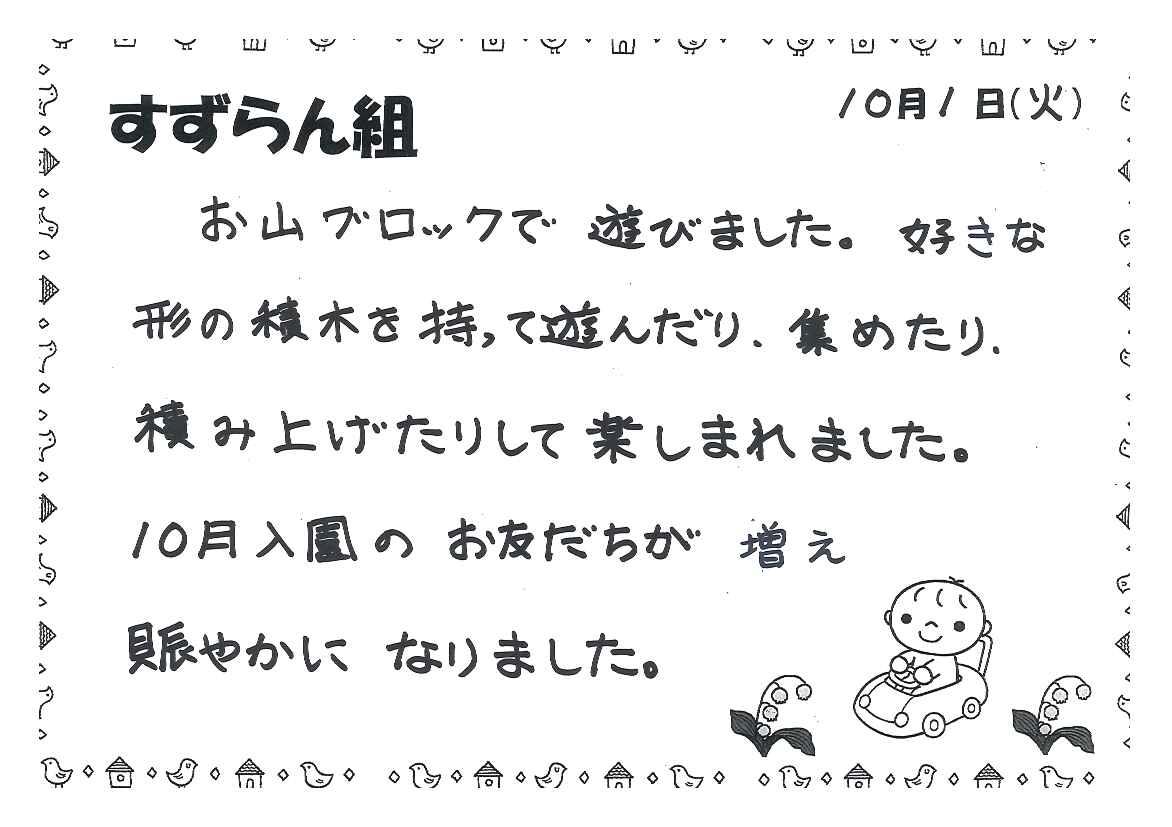 すずらん組
10月1日(火)
お山ブロックで 遊びました。 好きな
形の積木を持って遊んだり、集めたり、
積み上げたりして楽しまれました。
10月入園の お友だちが 増え
賑やかに なりました。